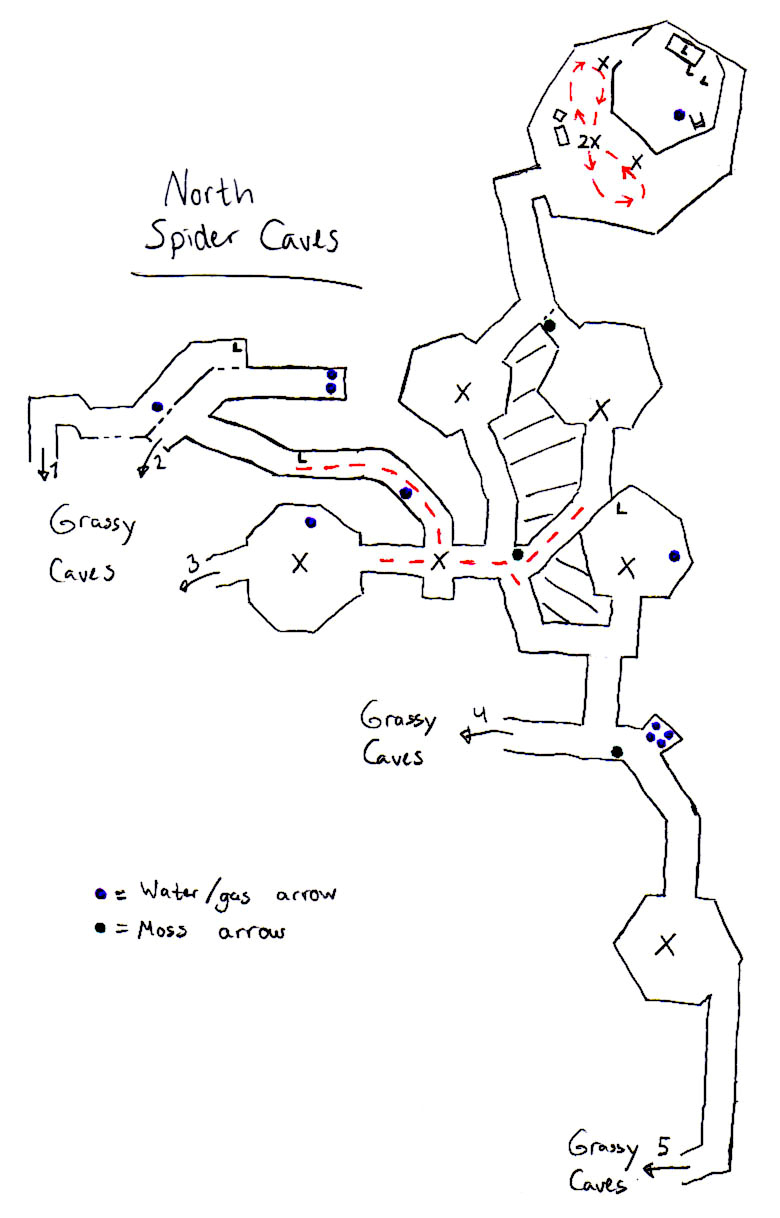 L
L
L
X
2X
X
North
Spider Caves
L
X
X
1
2
L
L
Grassy
Caves
3
X
X
X
Grassy
Caves
4
= Water/gas arrow
= Moss arrow
X
Grassy
Caves
5